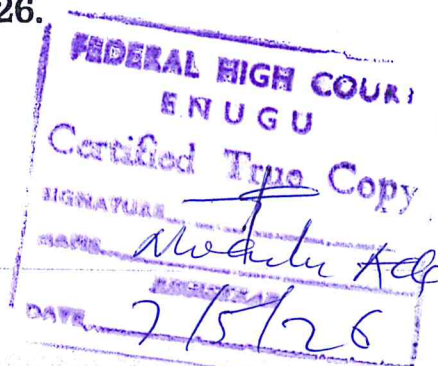 26.
FEDERAL HIGH COURT
ENUGU
Certified True Copy
SIGNATURE
NAME
REGISTRAR
DATE 7/5/26